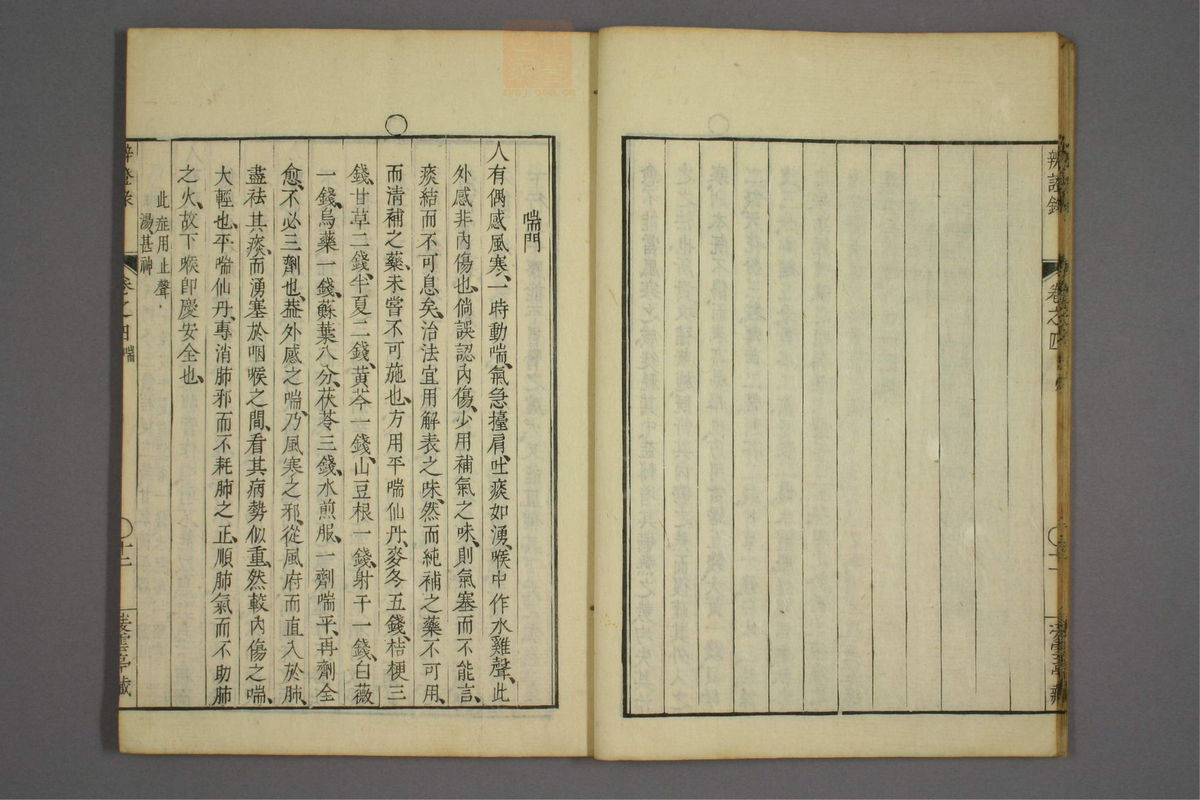 辨證錄
卷之四
喘門
人有偶感風寒、一時動喘、氣急擡肩、吐痰如湧、喉中作水雞聲、此
外感非內傷也、倘誤認內傷、少用補氣之味、則氣塞而不能言、
痰結而不可息矣、治法宜用解表之味、然而純補之藥不可用、
而清補之藥、未嘗不可施也、方用平喘仙丹、麥冬五錢、桔梗三
錢、甘草二錢、半夏二錢、黃芩一錢、山豆根一錢、射干一錢、白薇
一錢、烏藥一錢、蘇葉八分、茯苓三錢、水煎服、一劑喘平、再劑全
愈、不必三劑也、蓋外感之喘、乃風寒之邪、從風府而直入於肺、
盡祛其痰、而湧塞於咽喉之間、看其病勢似重、然較內傷之喘、
大輕也、平喘仙丹、專消肺邪而不耗肺之正、順肺氣而不助肺
之火、故下喉即慶安全也、
此症用止聲
湯、甚神
辨證錄
卷之四
喘
十二